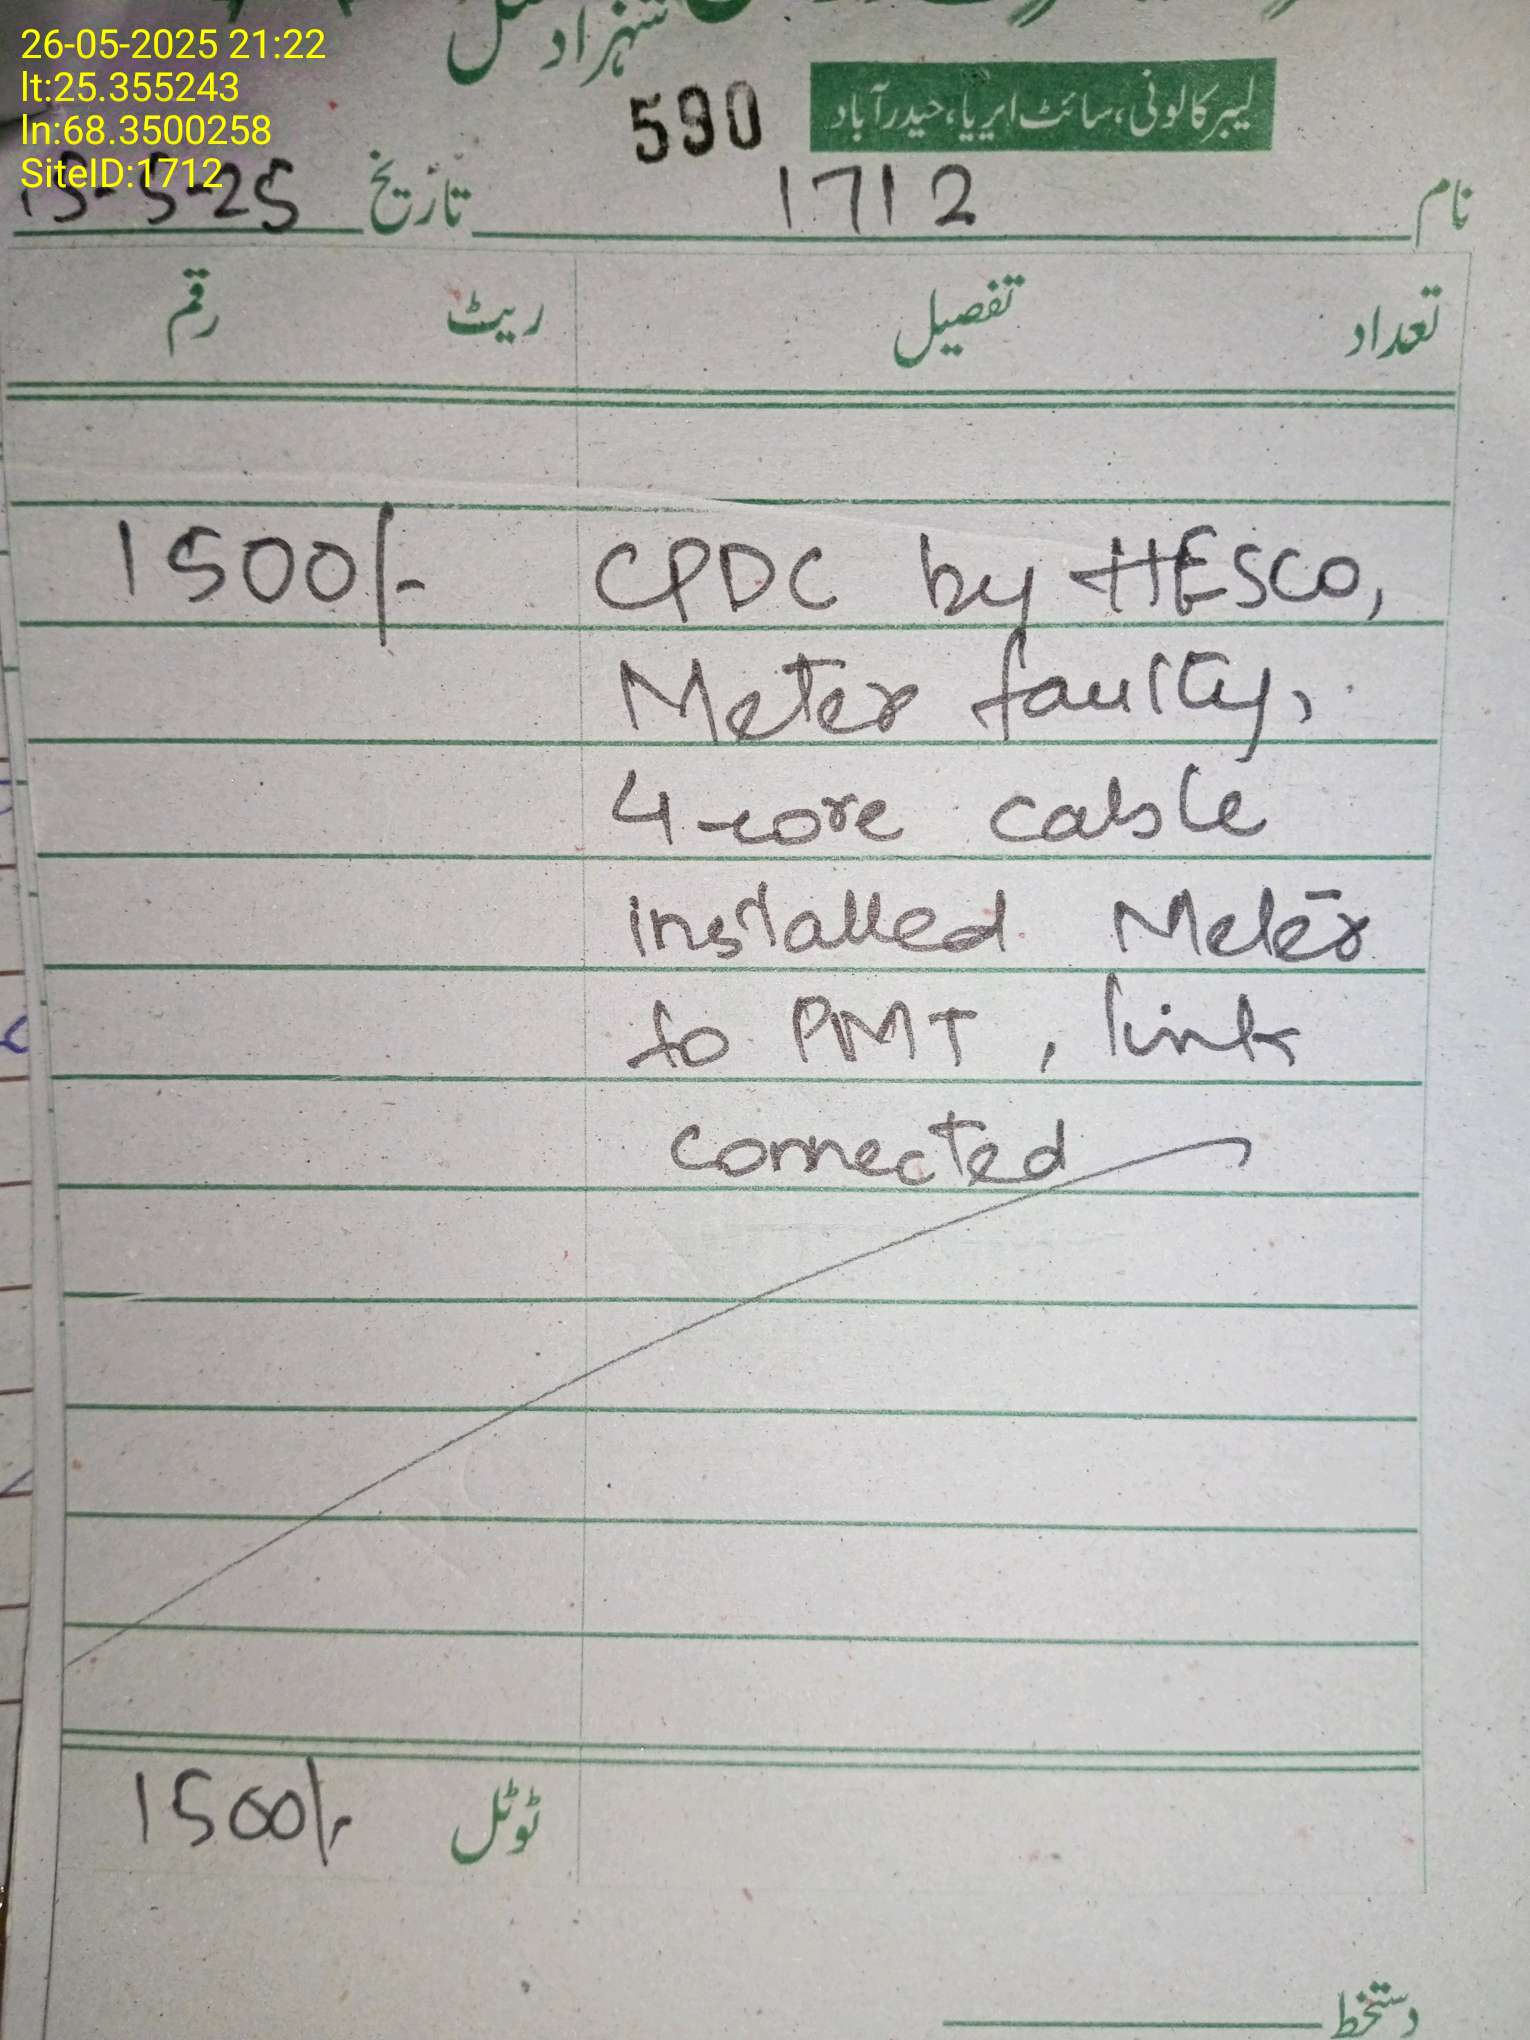 26-05-2025 21:22
lt:25.355243
ln:68.3500258
SiteID:1712
شہزاد
590
لیبر کالونی، سائٹ ایریا، حیدرآباد
نام 1712 تاریخ 13-5-25
تعداد تفصیل ریٹ رقم
CPDC by HESCO, 1500/-
Meter faulty,
4-core cable
installed Meter
to PMT, link
connected
ٹوٹل 1500/-
دستخط